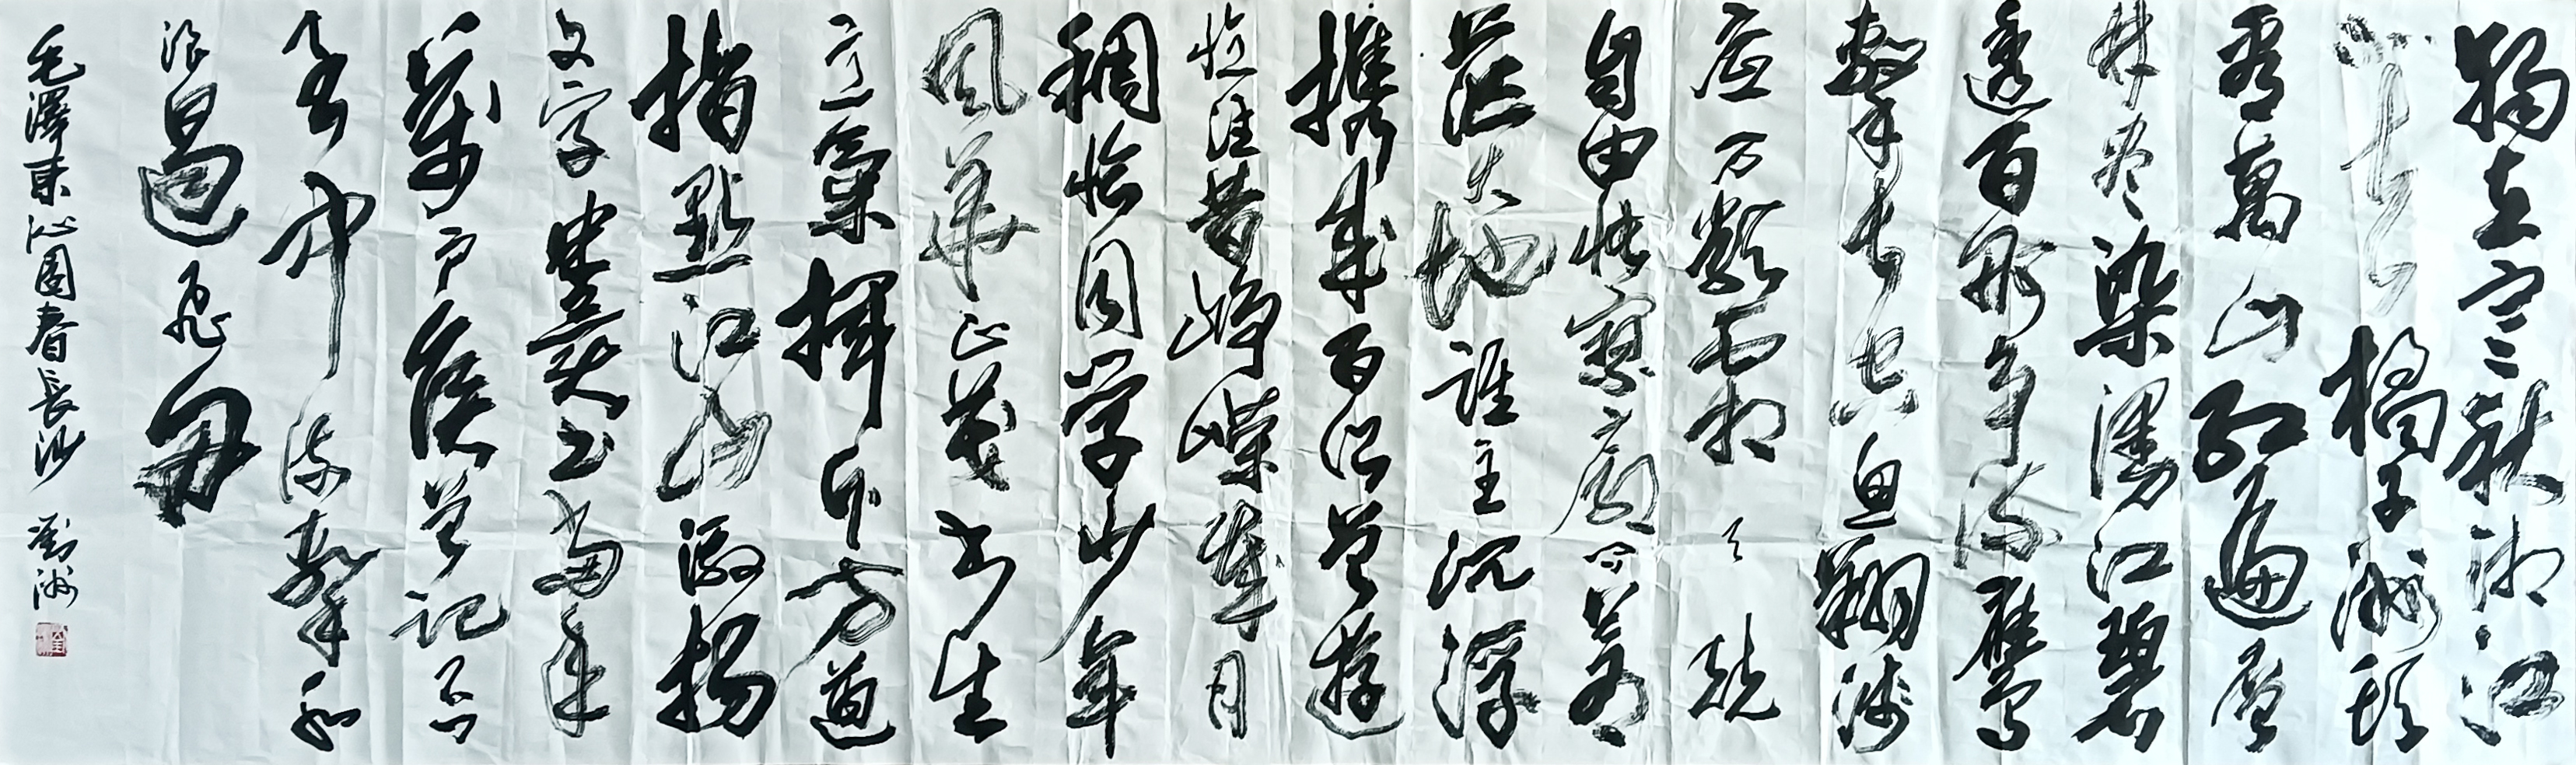 獨立寒秋湘江
北去橘子洲头
看萬山红遍层
林尽染漫江碧
透百舸争流鹰
擊长空鱼翔浅
底万類霜天競
自由怅寥廓问蒼
茫大地谁主沉浮
携来百侣曾游
忆往昔峥嵘歲月
稠恰同学少年
风華正茂书生
意氣揮斥方遒
指點江山激扬
文字粪土當年
萬户侯曾记否
到中流擊水
浪遏飞舟
毛澤東沁園春長沙 劉洲